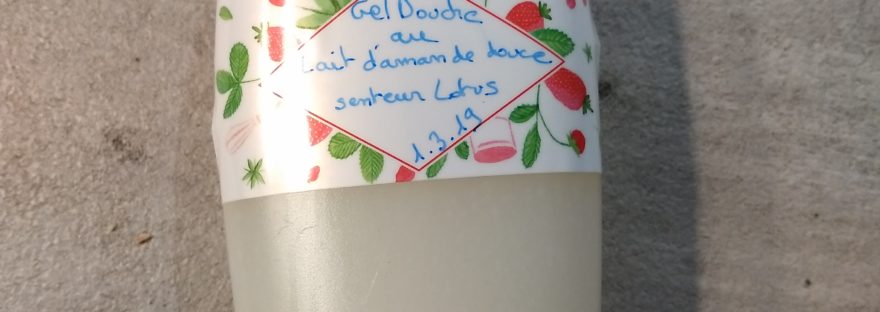 Gel Douche
au
Lait d'amande douce
senteur Lotus
1.3.19